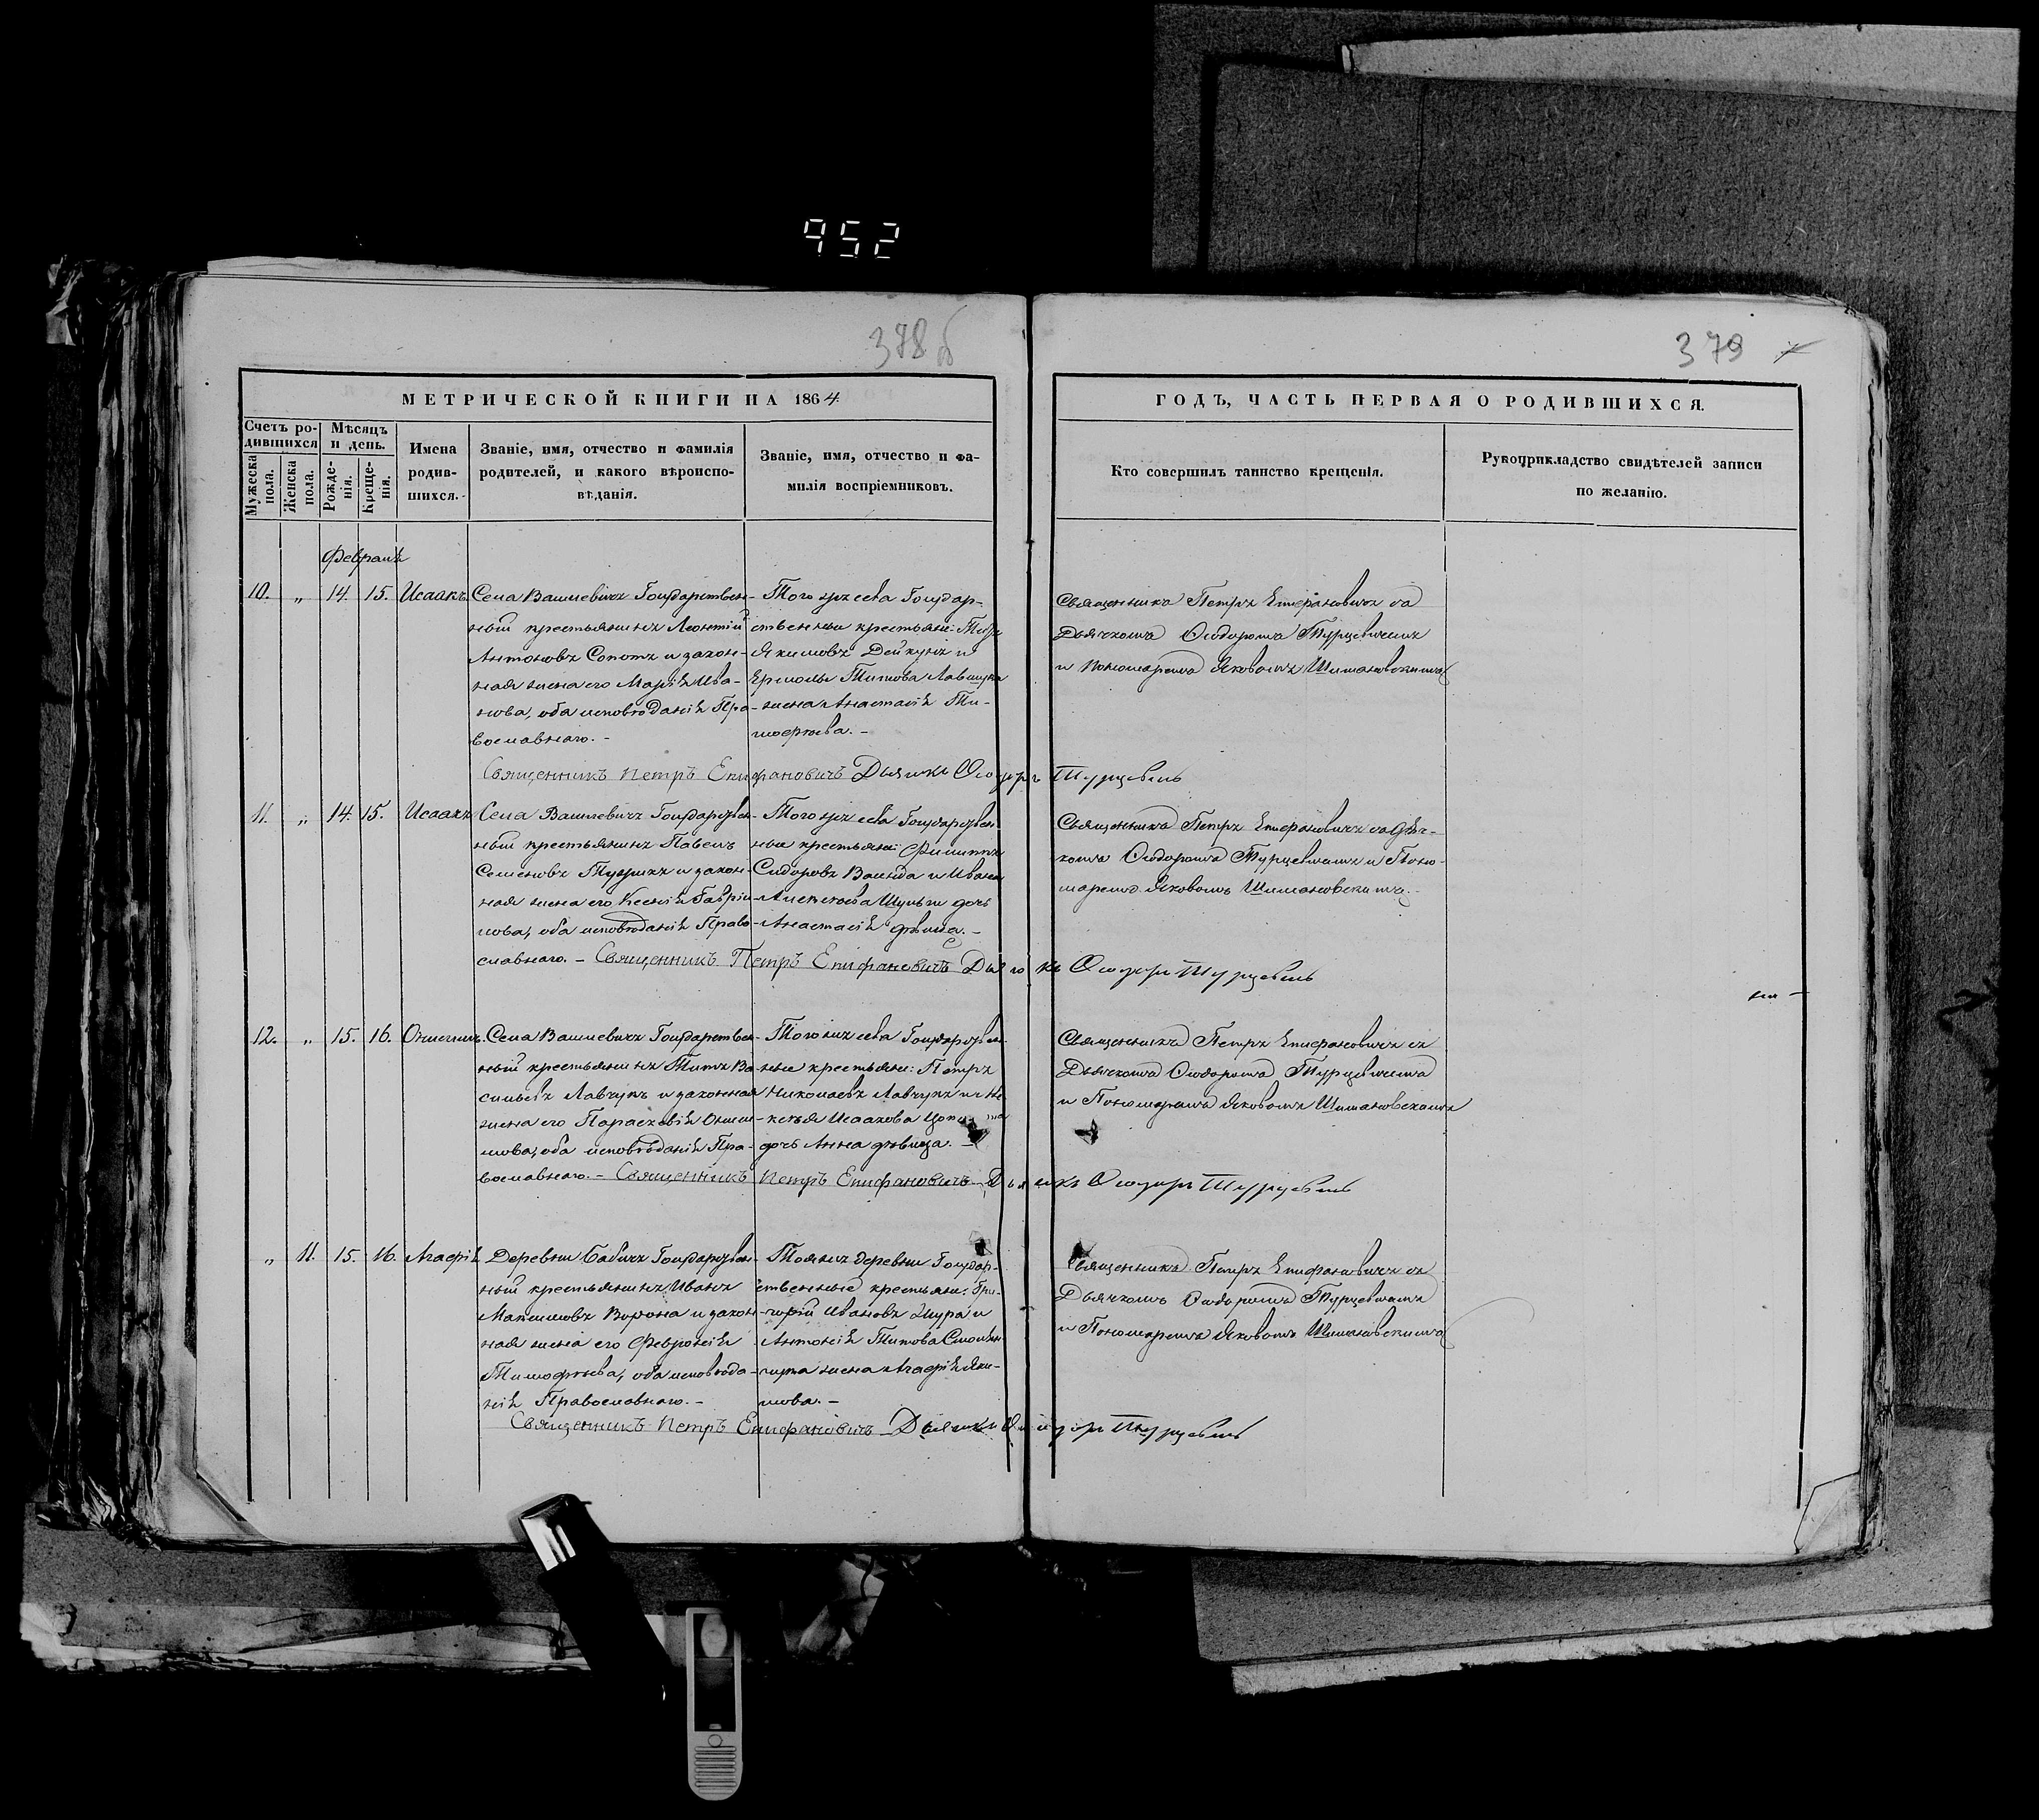 952
378б
379
МЕТРИЧЕСКОЙ КНИГИ НА 1864
ГОДЪ, ЧАСТЬ ПЕРВАЯ О РОДИВШИХСЯ.
Счетъ родившихся
Мужеска пола.
Женска пола.
Мѣсяцъ и день.
Рожденія.
Крещенія.
Имена родившихся.
Званіе, имя, отчество и фамилія родителей, и какого вѣроисповѣданія.
Званіе, имя, отчество и фамилія воспріемниковъ.
Кто совершилъ таинство крещенія.
Рукоприкладство свидѣтелей записи по желанію.
Февраль
10. „ 14. 15. Исаакъ.
Села Вашлевичъ Государствен-
ный крестьянинъ Леонтій
Антоновъ Сопотъ и закон-
ная жена его Марія Ива-
нова, оба исповѣданія Пра-
вославнаго. -
Того же села Государ-
ственные крестьяне: Петръ
Якимовъ Дейкунъ и
Ермолы Титова Лавщука
жена Анастасія Ти-
мофеева. -
Священникъ Петръ Епифановичъ съ
Дьячкомъ Ѳеодоромъ Турцевичемъ
и Пономаремъ Яковомъ Шимановскимъ
Священникъ Петръ Епифановичъ Дьячекъ Ѳеодоръ Турцевичъ
11. „ 14. 15. Исаакъ
Села Вашлевичъ Государствен-
ный крестьянинъ Павелъ
Семеновъ и закон-
ная жена его Ксенія Гаврiи-
лова, оба исповѣданія Право-
славнаго. -
Того же села Государствен-
ные крестьяне: Филиппъ
Сидоровъ и Ивана
Алексѣева дочь
Анастасія дѣвица. -
Священникъ Петръ Епифановичъ съ Дьяч-
комъ Ѳеодоромъ Турцевичемъ и Поно-
маремъ Яковомъ Шимановскимъ. -
Священникъ Петръ Епифановичъ Дьячекъ Ѳеодоръ Турцевичъ
12. „ 15. 16. Онисимъ.
Села Вашлевичъ Государствен-
ный крестьянинъ Титъ Ва-
сильевъ Лавчукъ и законная
жена его ПараскевіяОниси-
мова, оба исповѣданія Пра-
вославнаго. -
Того же села Государствен-
ные крестьяне: Петръ
Николаевъ Лавчукъ и
Исаакова
дочь Анна дѣвица. -
Священникъ Петръ Епифановичъ съ
Дьячкомъ Ѳеодоромъ Турцевичемъ
и Пономаремъ Яковомъ Шимановскимъ
Священникъ Петръ Епифановичъ Дьячекъ Ѳеодоръ Турцевичъ
„ 11. 15. 16. Агафія
Деревни Бабичъ Государствен-
ный крестьянинъ Иванъ
Максимовъ Ворона и закон-
ная жена его Февронія
Тимофѣева, оба исповѣда-
нія Православнаго. -
Тояжъ деревни Государ-
ственные крестьяне: Гри-
горій Ивановъ и
Антонія Титова
жена Агафія Яки-
мова. -
Священникъ Петръ Епифановичъ съ
Дьячкомъ Ѳеодоромъ Турцевичемъ
и Пономаремъ Яковомъ Шимановскимъ
Священникъ Петръ Епифановичъ Дьячекъ Ѳеодоръ Турцевичъ